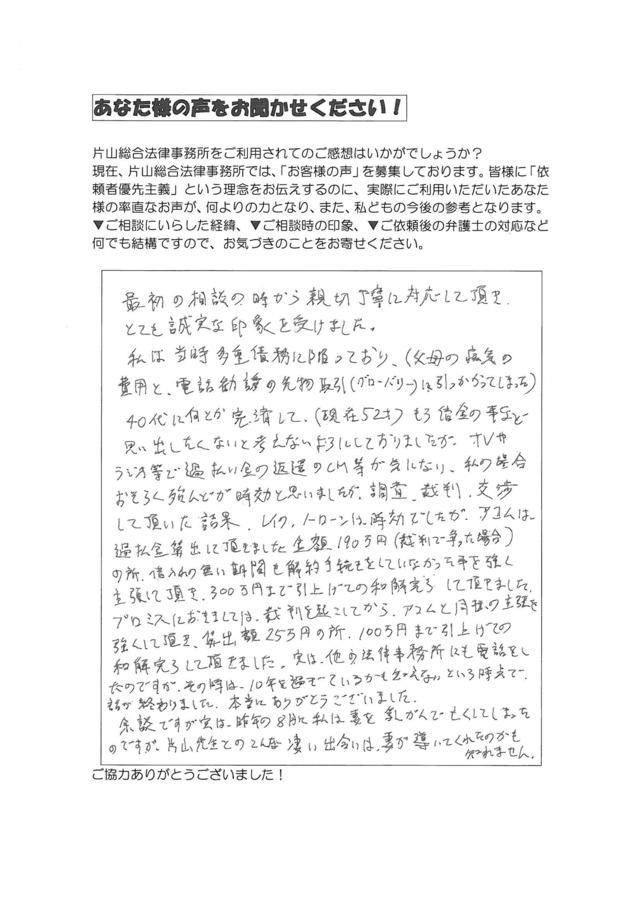 あなた様の声をお聞かせください！
片山総合法律事務所をご利用されてのご感想はいかがでしょうか？
現在、片山総合法律事務所では、「お客様の声」を募集しております。皆様に「依
頼者優先主義」という理念をお伝えするのに、実際にご利用いただいたあなた
様の率直なお声が、何よりの力となり、また、私どもの今後の参考となります。
▼ご相談にいらした経緯、▼ご相談時の印象、▼ご依頼後の弁護士の対応など
何でも結構ですので、お気づきのことをお寄せください。
最初の相談の時から親切丁寧に対応して頂き、
とても誠実な印象を受けました。
私は当時多重債務に陥っており、（父母の病気の
費用と、電話勧誘の先物取引（グローバリー）に引っかかってしまった）
40代に何とか完済して、（現在52才）もう借金の事など
思い出したくないと考えないようにしておりましたが、TVや
ラジオ等で過払い金の返還のCM等が気になり、私の場合
おそらく殆んどが時効と思いましたが、調査、裁判、交渉
して頂いた結果、レイク、ノーローンは時効でしたが、アコムは、
過払金算出して頂きました金額190万円（裁判で争った場合）
の所、借入れの無い期間も解約手続きをしていなかった事を強く
主張して頂き、300万円まで引上げての和解完了して頂きました。
プロミスにおきましては、裁判を起こしてから、アコムと同様の主張を
強くして頂き、算出額25万円の所、100万円まで引上げての
和解完了して頂きました。実は、他の法律事務所にも電話をし
たのですが、その時は、10年を過ぎているかも知れないという時点で、
話が終わりました。本当にありがとうございました。
余談ですが実は、昨年の8月に私は妻を乳がんで亡くしてしまった
のですが、片山先生とのこんな凄い出会いは、妻が導いてくれたのかも
知れません。
ご協力ありがとうございました！